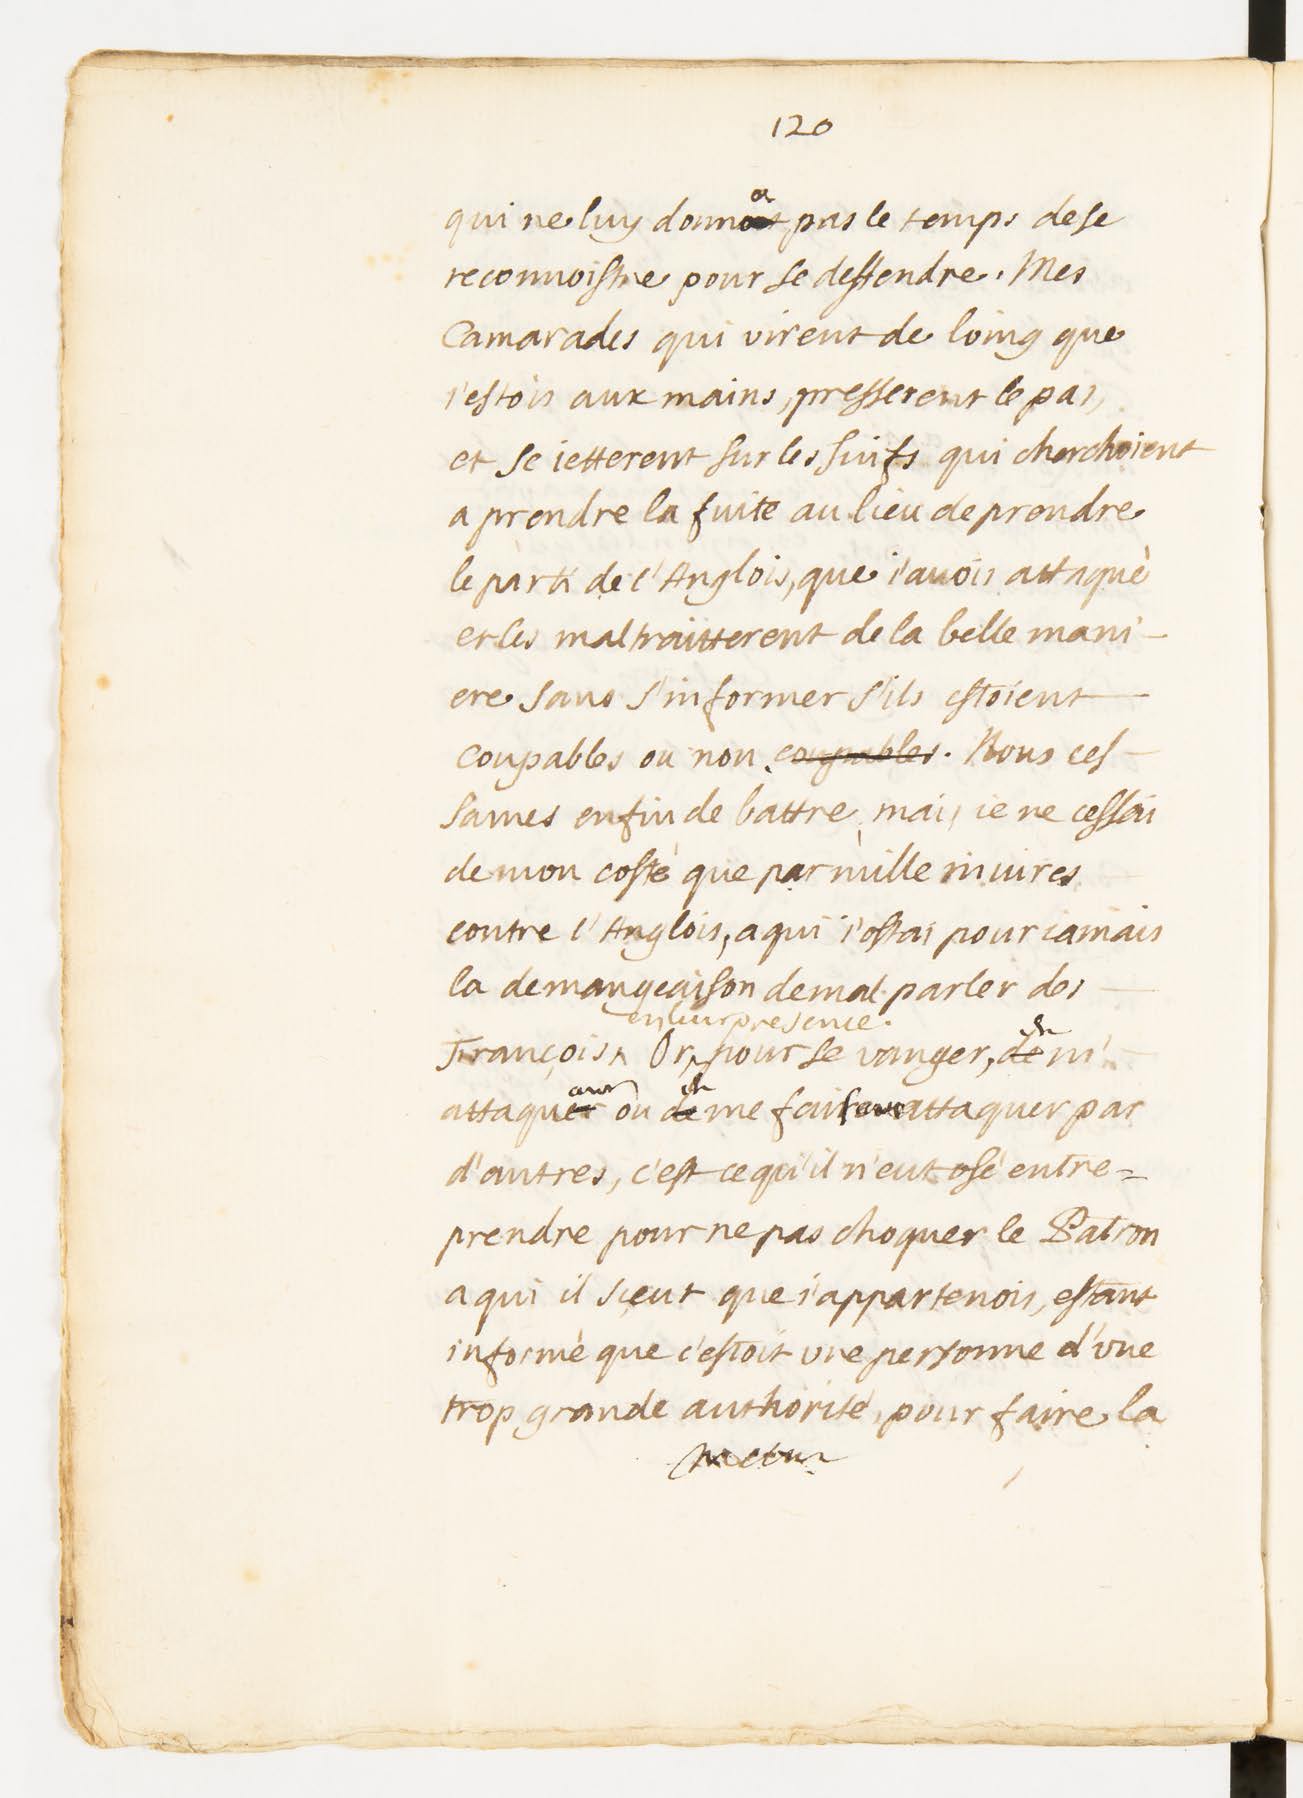 120
qui ne luy donna pas le temps de se
reconnoistre pour se deffendre. Mes
Camarades qui virent de loing que
i'estois aux mains, presserent le pas,
et se ietterent sur les Iuifs qui cherchoient
a prendre la fuite au lieu de prendre
le parti de l'Anglois, que i'auois attaqué
et les maltraitterent de la belle mani-
ere sans s'informer s'ils estoient
coupables ou non coupables. Nous ces-
sames enfin de battre, mais ie ne cessai
de mon costé que par mille iniures
contre l'Anglois, a qui i'ostai pour iamais
la demangeaison de mal parler des
en leur presence.
François, Or, pour se vanger, de m'
attaquer ou de me faire attaquer par
d'autres, c'est ce qu'il n'eut osé entre=
prendre pour ne pas choquer le Patron
a qui il sceut que i'appartenois, estant
informé que c'estoit vne personne d'vne
trop grande authorité, pour faire la